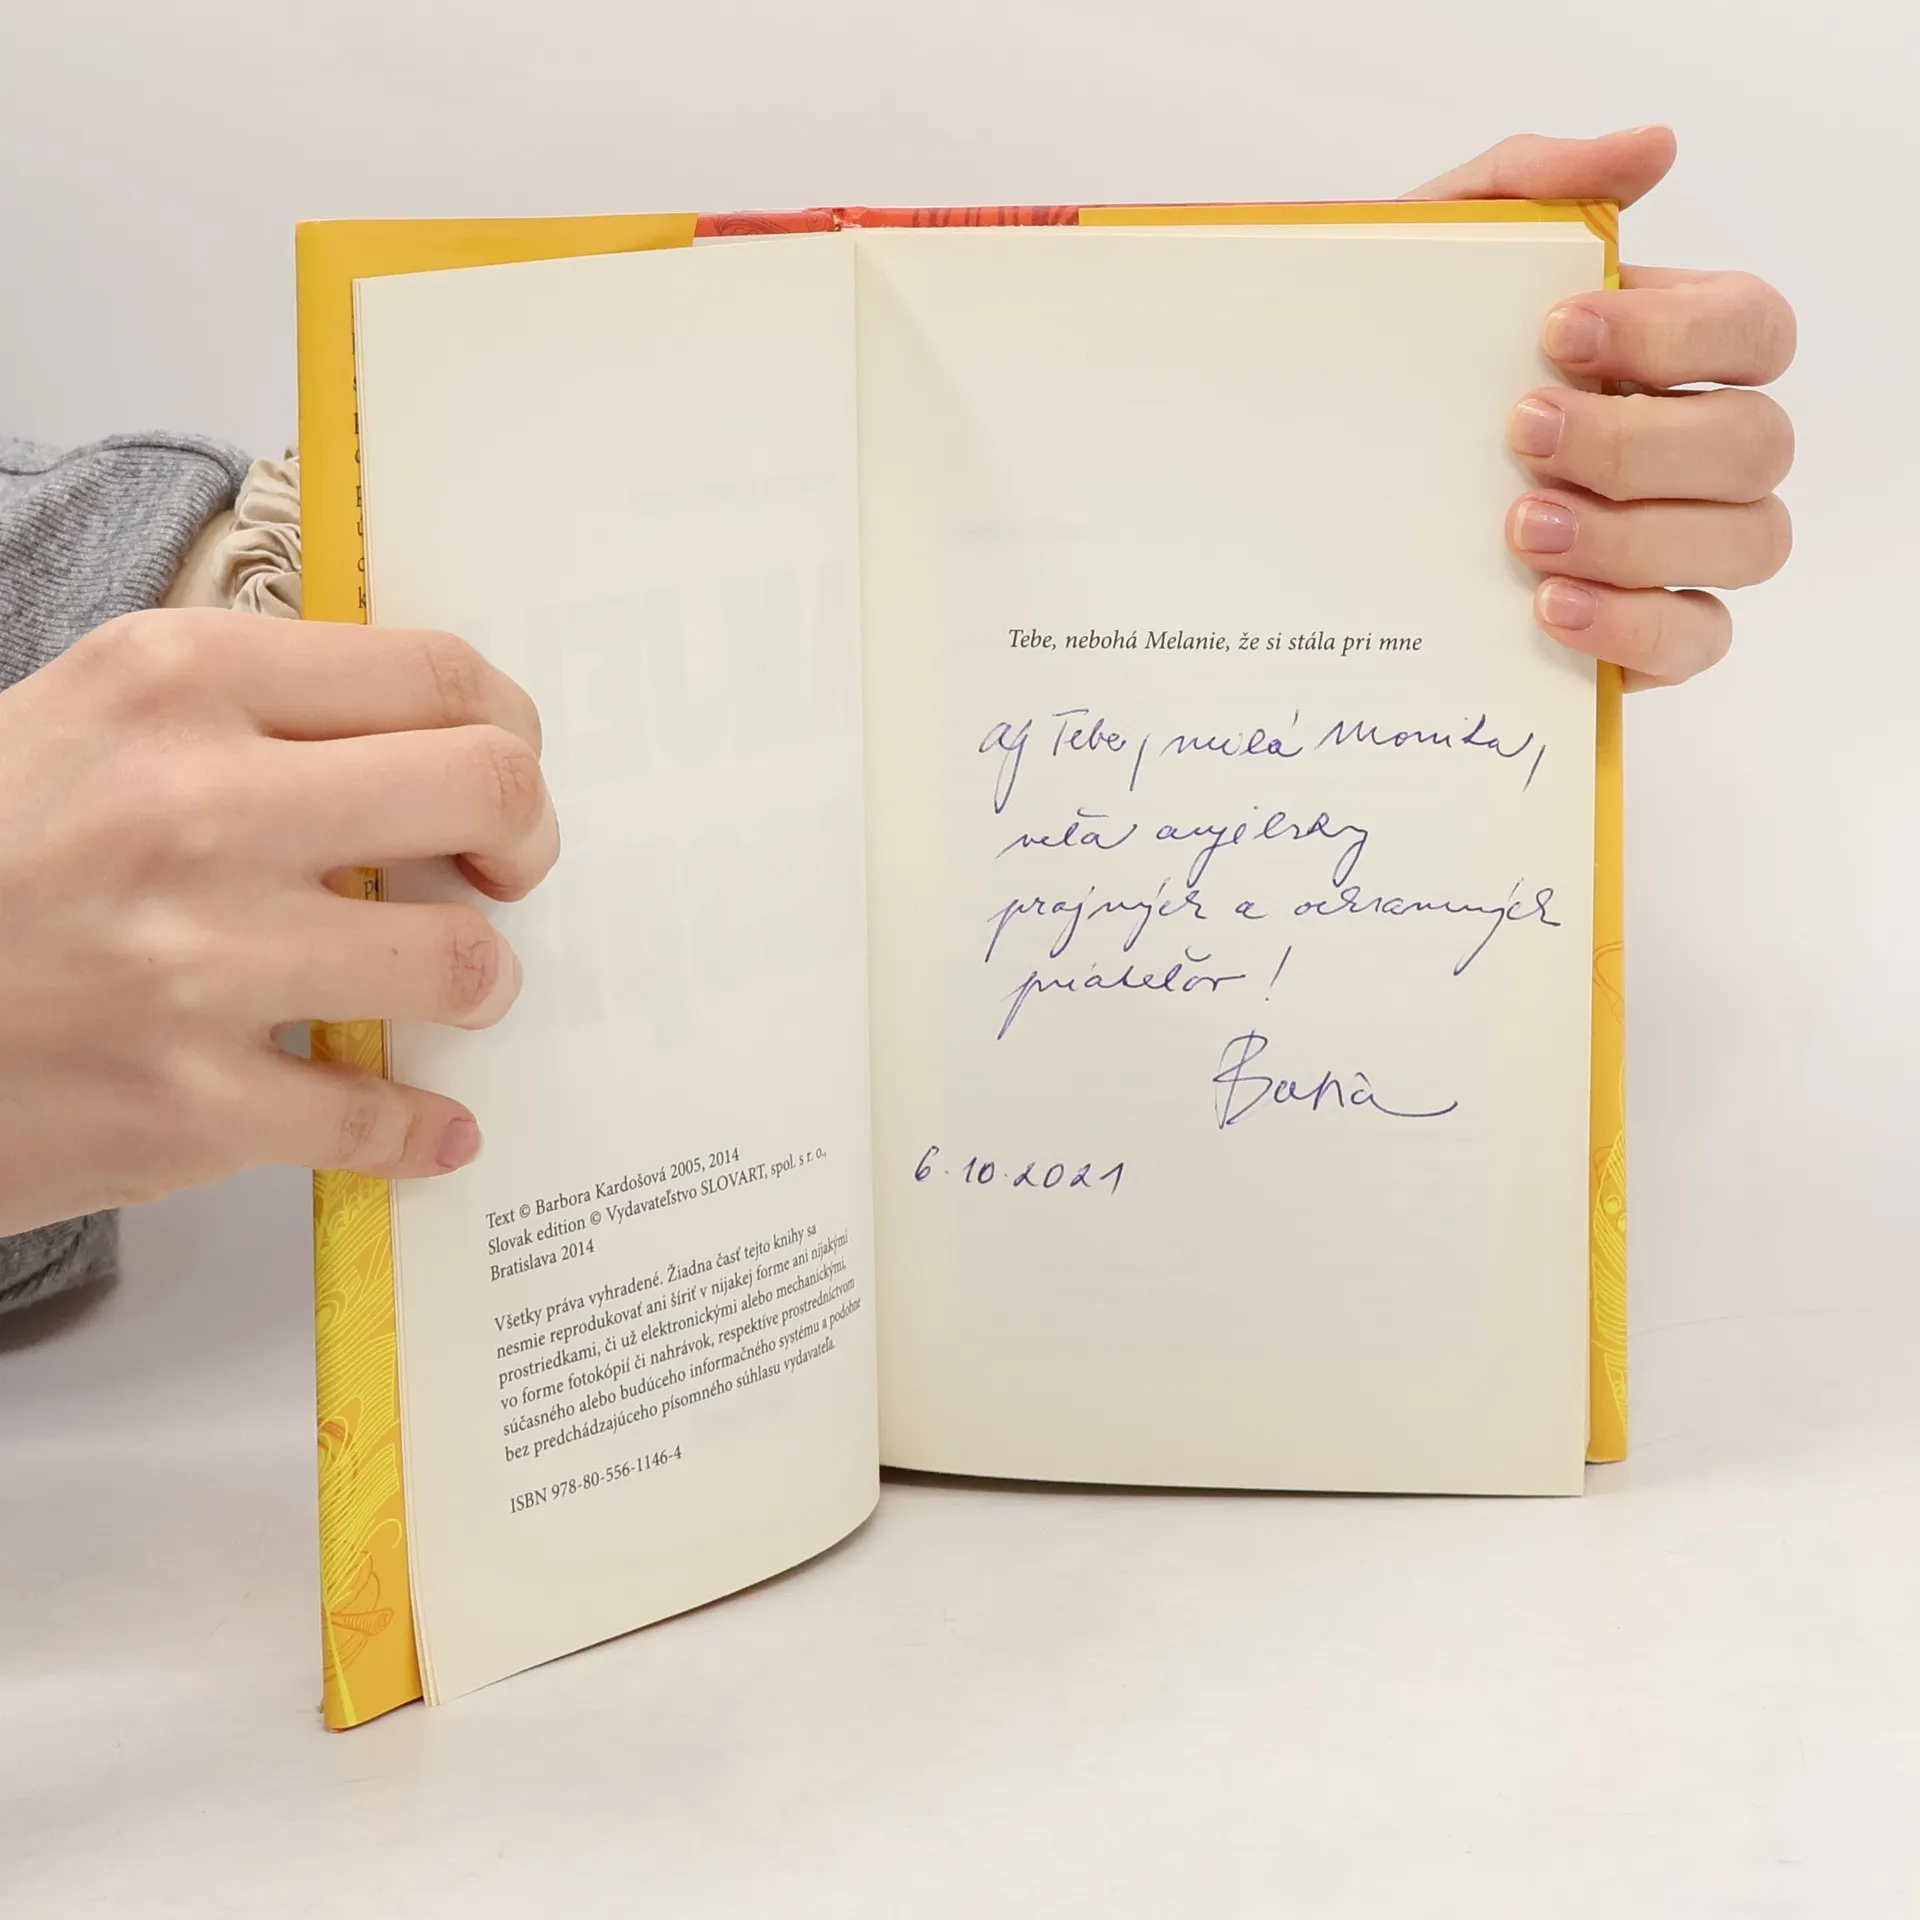 Text © Barbora Kardošová 2005, 2014
Slovak edition © Vydavateľstvo SLOVART, spol. s r. o.,
Bratislava 2014
Všetky práva vyhradené. Žiadna časť tejto knihy sa
nesmie reprodukovať ani šíriť v nijakej forme ani nijakými
prostriedkami, či už elektronickými alebo mechanickými,
vo forme fotokópií či nahrávok, respektíve prostredníctvom
súčasného alebo budúceho informačného systému a podobne
bez predchádzajúceho písomného súhlasu vydavateľa.
ISBN 978-80-556-1146-4
Tebe, nebohá Melanie, že si stála pri mne
Aj Tebe, milá Monika,
veľa anjelsky
prajných a ochranných
priateľov!
6.10.2021